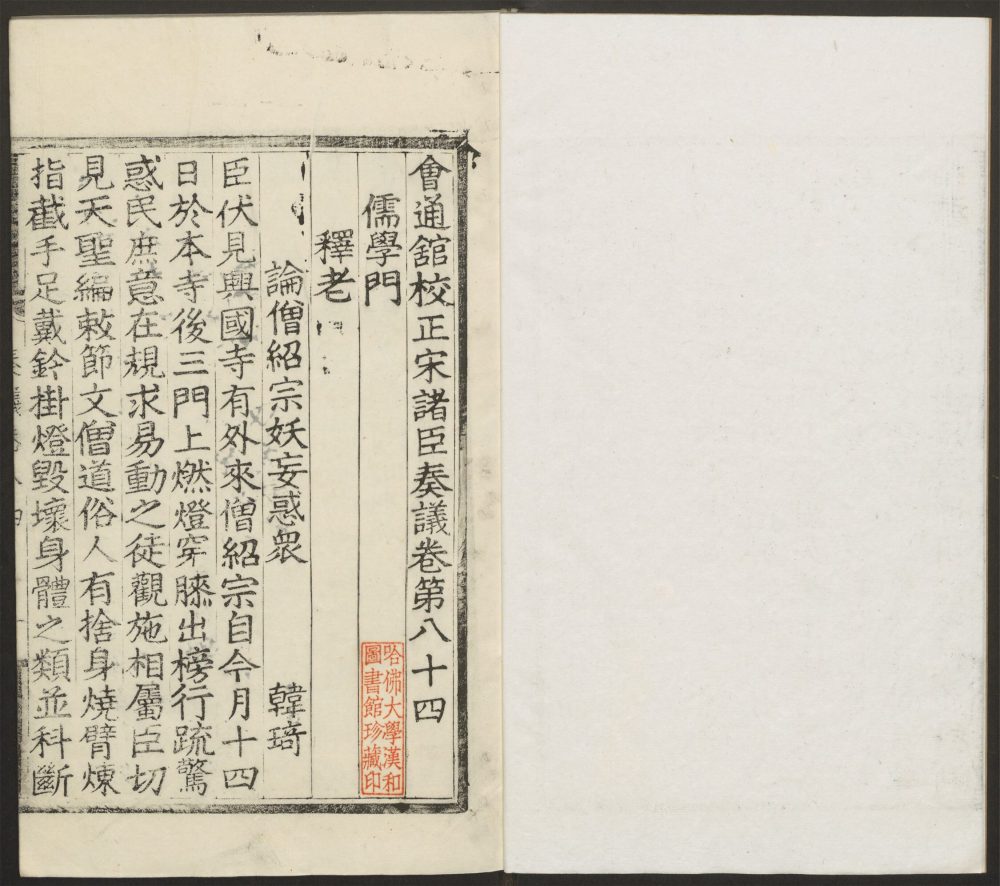 會通舘校正宋諸臣奏議卷第八十四
儒學門
釋老
論僧紹宗妖妄惑衆 韓琦
臣伏見興國寺有外來僧紹宗自今月十四
日於本寺後三門上燃燈穿膝出榜行䟽驚
惑民庶意在規求易動之徒觀施相屬臣切
見天聖編敕節文僧道俗人有捨身燒臂煉
指截手足戴鈴掛燈毀壞身體之類並科斷
哈佛大學漢和
圖書館珍藏印